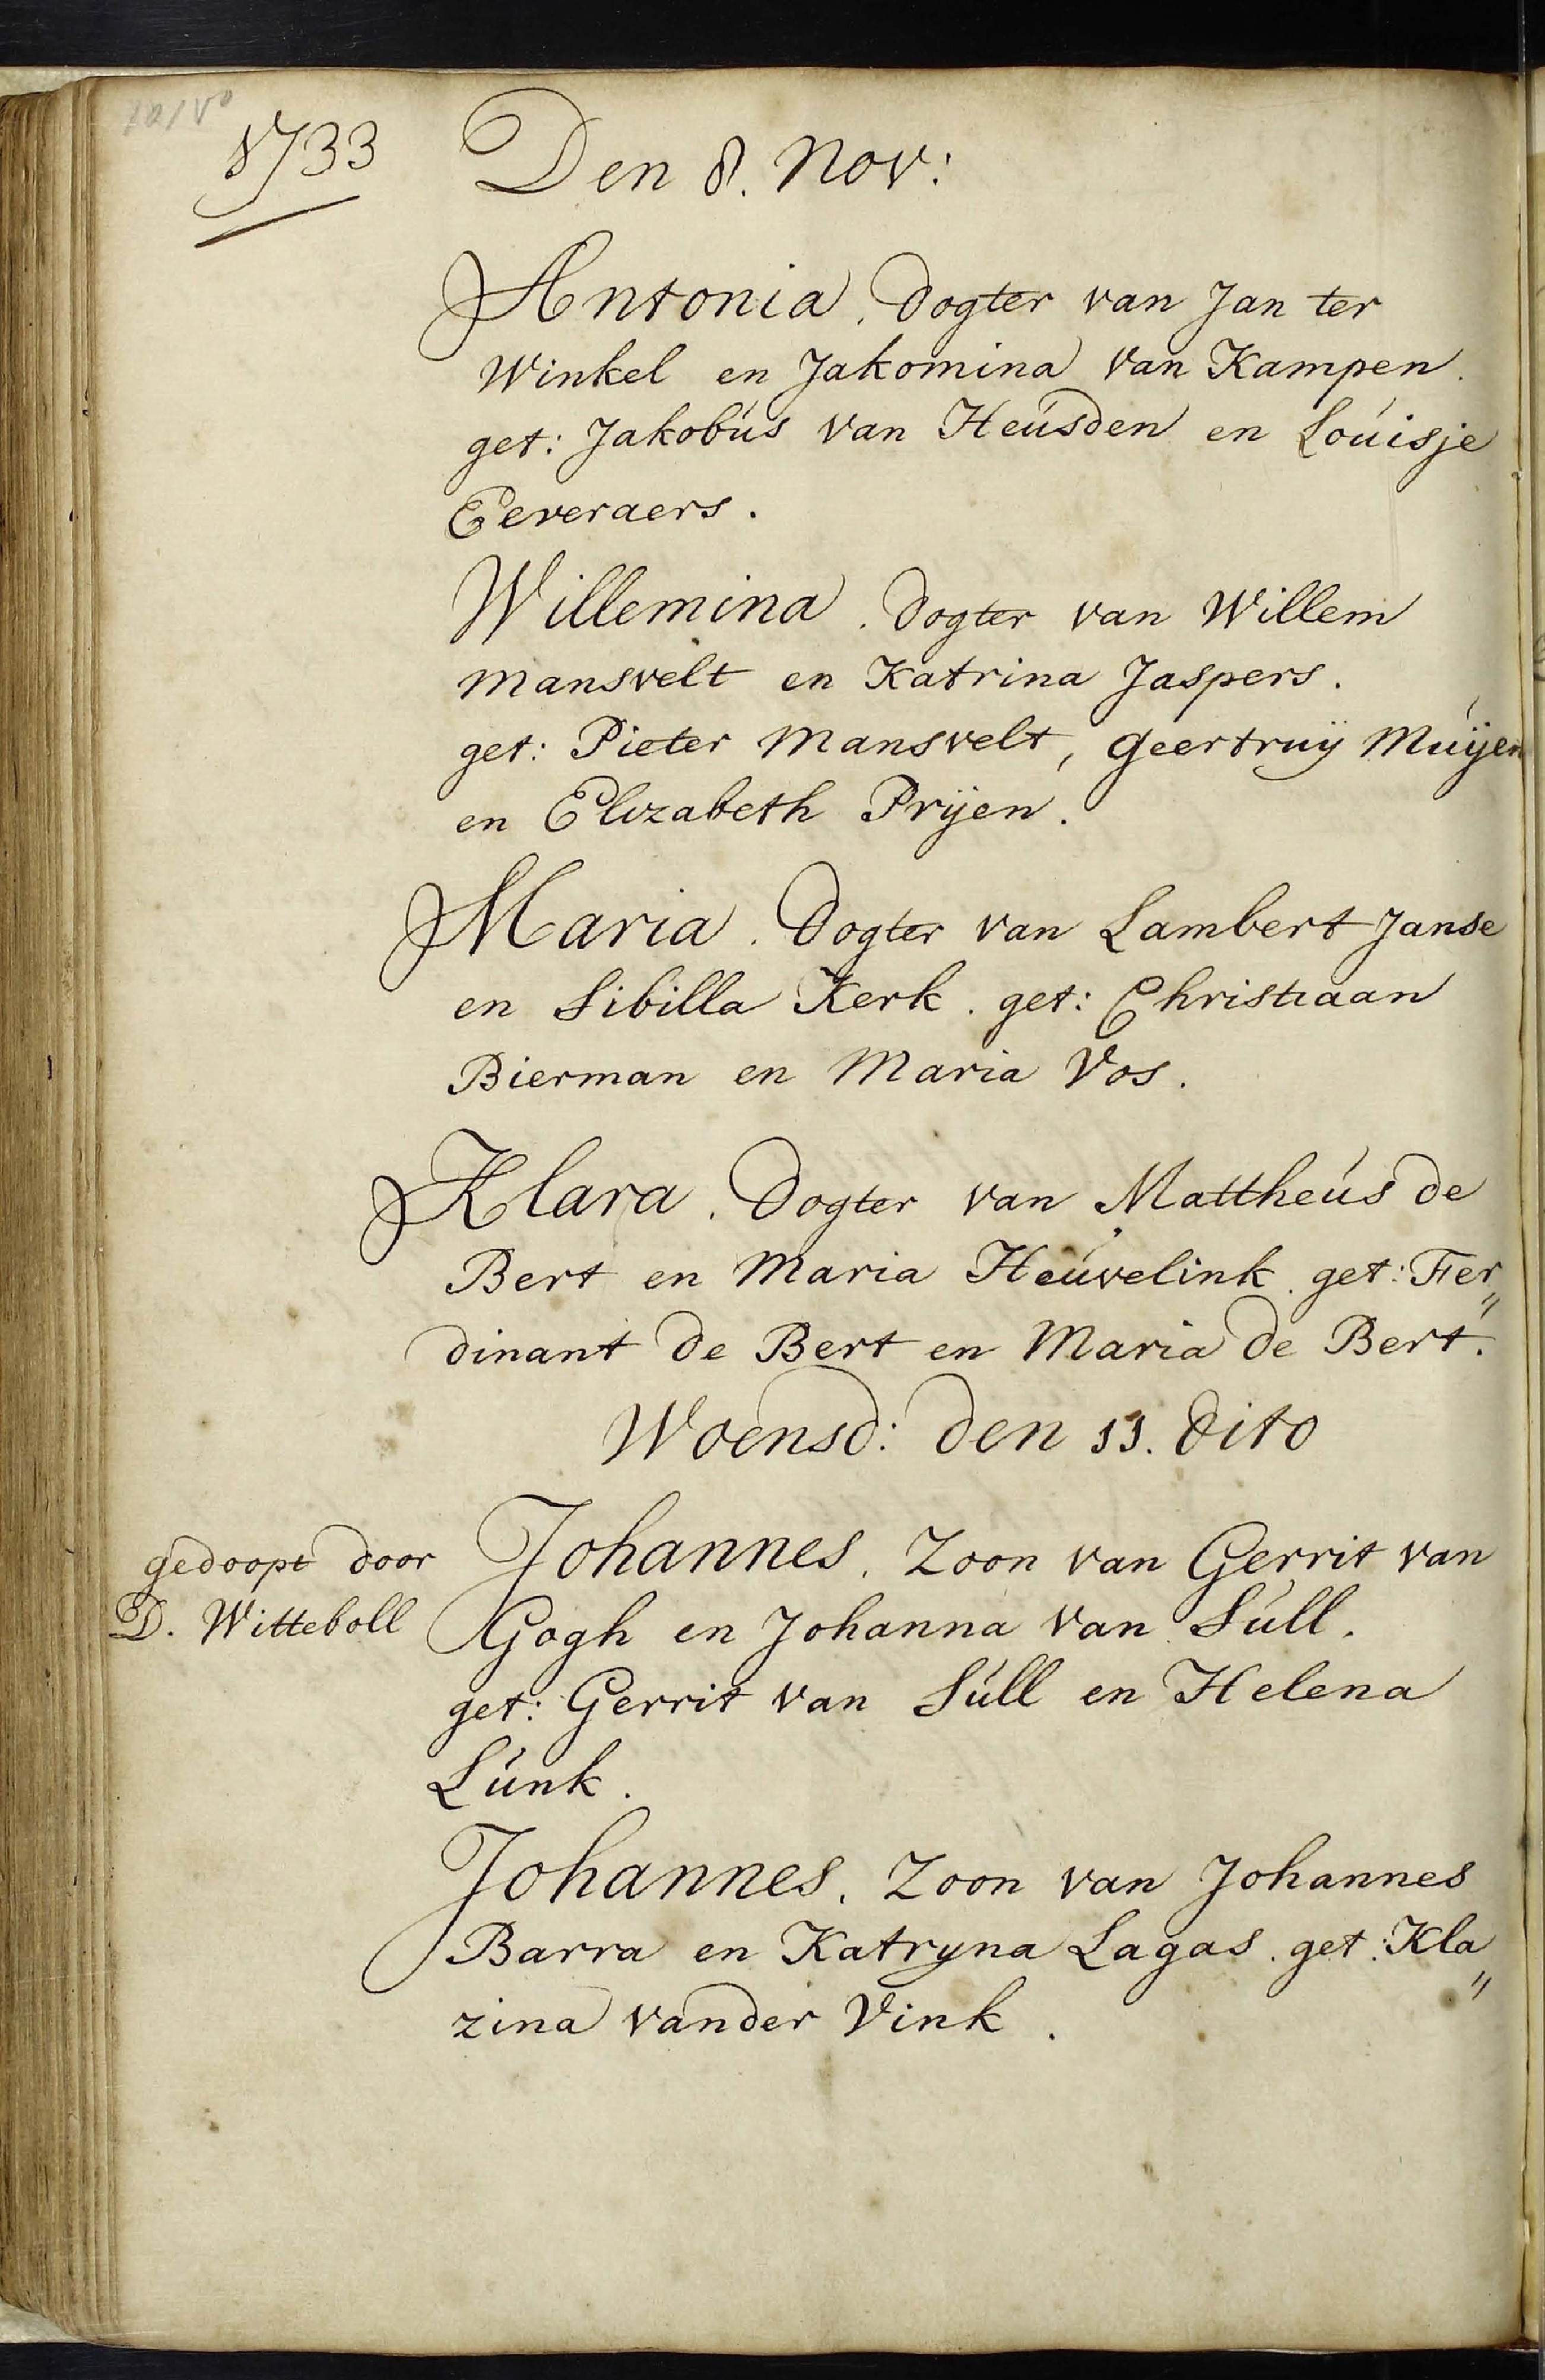 1733
Den 8. Nov:
Antonia. Dogter van Jan ter
Winkel en Jakomina van Kampen.
get: Jakobús van Heúsden en Loúisje
Eeveraers.
Willemina. Dogter van Willem
Mansvelt en Katrina Jaspers.
get: Pieter Mansvelt, Geertruij Múijen
en Elizabeth Prijen.
Maria. Dogter van Lambert Janse
en Sibilla Kerk. get: Christiaan
Bierman en Maria Vos.
Klara. Dogter van Mattheús de
Bert en Maria Heúvelink. get: Fer„
dinant de Bert en Maria de Bert.
Woensd: den 11. dito
gedoopt door
D. Witteboll
Johannes. Zoon van Gerrit van
Gogh en Johanna van Súll.
get: Gerrit van Súll en Helena
Lúnk.
Johannes. Zoon van Johannes
Barra en Katryna Lagas. get: Kla„
zina vander Vink.